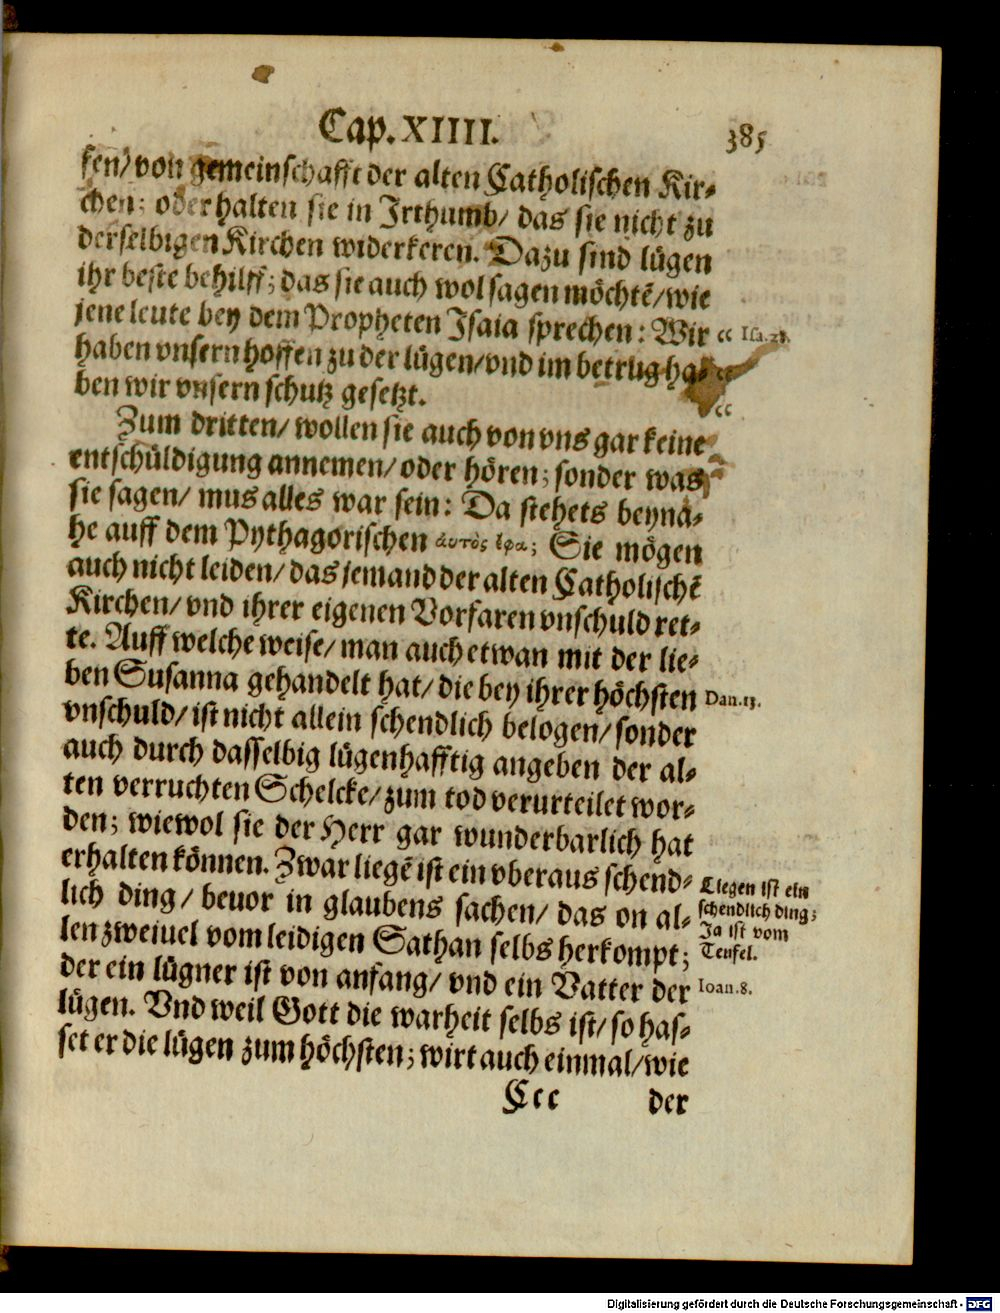 Cap. XIIII. 385
sen/ von gemeinschafft der alten Catholischen Kir⸗
chen; oder halten sie in Irthumb/ das sie nicht zu
derselbigen Kirchen widerkeren. Dazu sind lügen
ihr beste behilff; das sie auch wol sagen möchtẽ/ wie
jene leute bey dem Propheten Isaia sprechen: Wir
“ Isa. 28.
haben vnsern hoffen zu der lügen/ vnd im betrug ha⸗
“
ben wir vnsern schutz gesetzt.
“
Zum dritten/ wollen sie auch von vns gar keine
entschüldigung annemen/ oder hören; sonder was
sie sagen/ mus alles war sein: Da stehets beyna⸗
he auff dem Pythagorischen ἀυτὸς ἔφα; Sie mögen
auch nicht leiden/ das jemand der alten Catholischẽ
Kirchen/ vnd ihrer eigenen Vorfaren vnschuld ret⸗
te. Auff welche weise/ man auch etwan mit der lie⸗
ben Susanna gehandelt hat/ die bey ihrer höchsten
Dan. 13.
vnschuld/ ist nicht allein schendlich belogen/ sonder
auch durch dasselbig lügenhafftig angeben der al⸗
ten verruchten Schelcke/ zum tod verurteilet wor⸗
den; wiewol sie der Herr gar wunderbarlich hat
erhalten können. Zwar liegẽ ist ein vberaus schend⸗
lich ding/ beuor in glaubens sachen/ das on al⸗
len zweiuel vom leidigen Sathan selbs herkompt;
Liegen ist ein
schendlich ding;
Ja ist vom
Teufel.
der ein lügner ist von anfang/ vnd ein Vatter der
Ioan. 8.
lügen. Vnd weil Gott die warheit selbs ist/ so has⸗
set er die lügen zum höchsten; wirt auch einmal/ wie
Ccc der
Digitalisierung gefördert durch die Deutsche Forschungsgemeinschaft - DFG